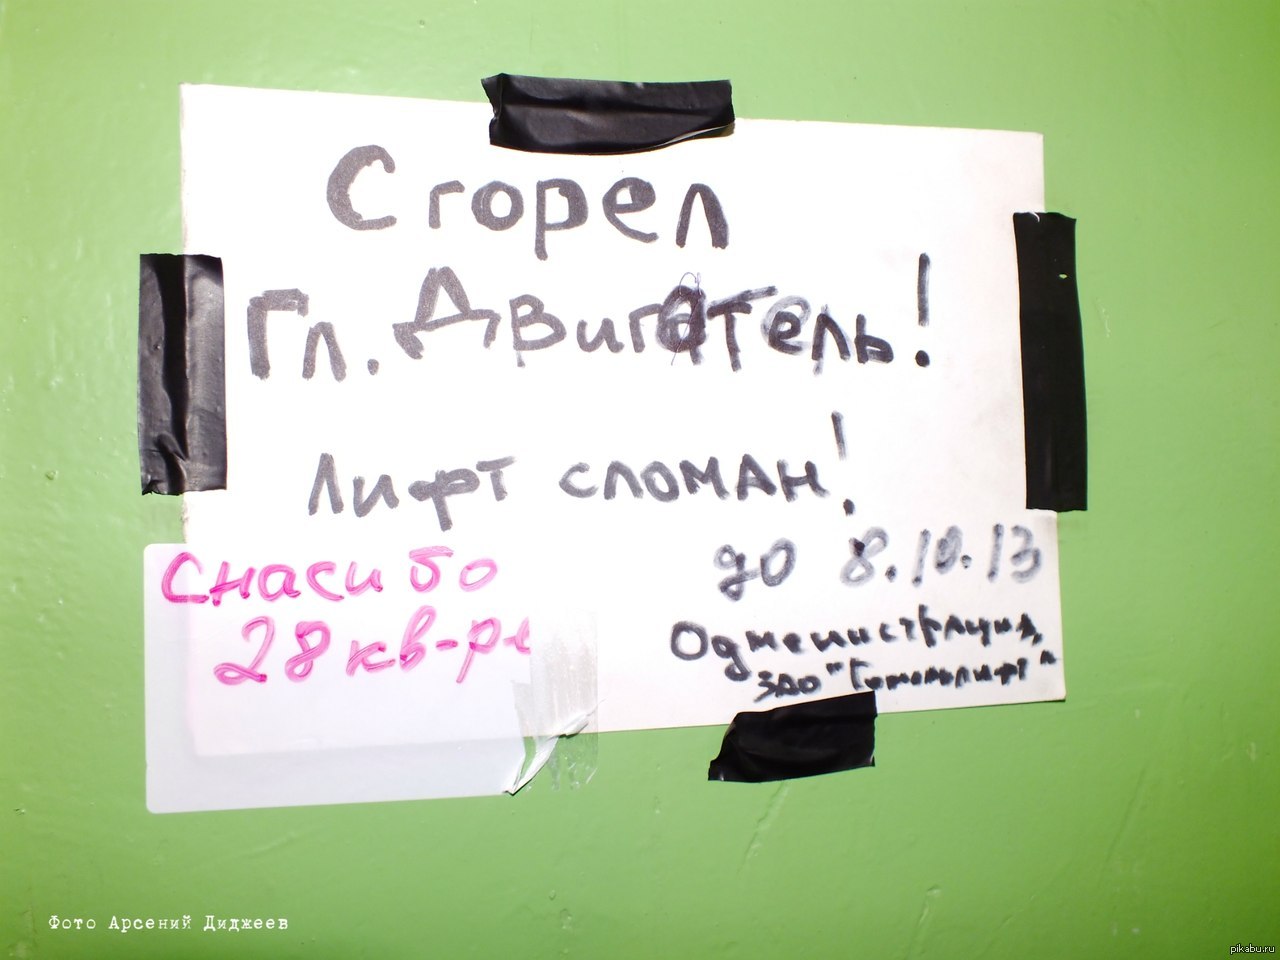 Сгорел
Гл. Двигатель!
Лифт сломан!
до 8.10.13
Одменистрация,
ЗАО
Спасибо
28 кв-ра
Фото Арсений Диджеев
pikabu.ru